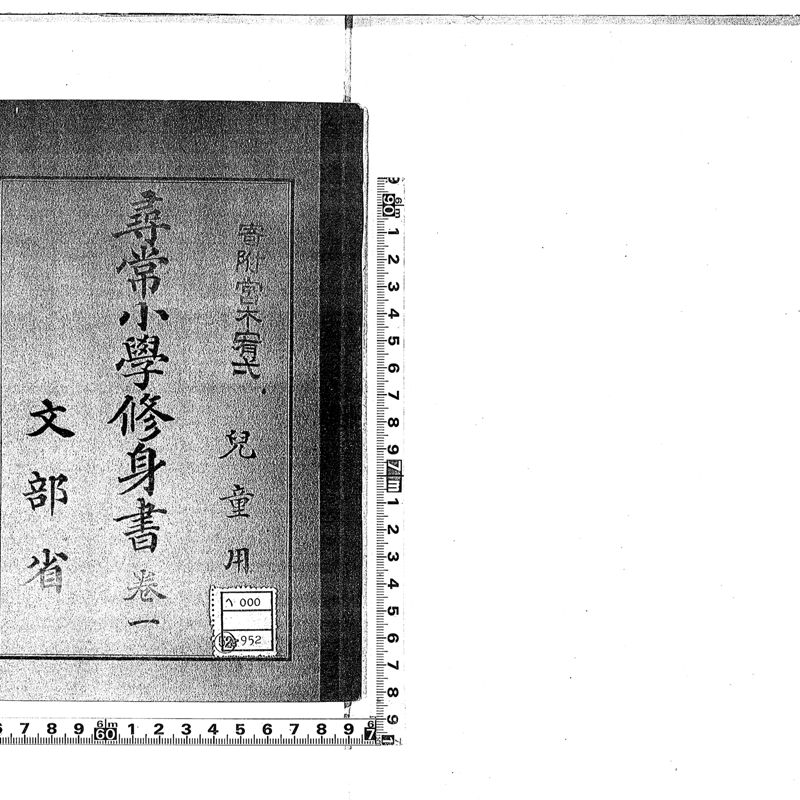 寄附宮木宥
兒童用
尋常小學修身書 卷一
文部省
ヘ 000
52-952
6m
90 1 2 3 4 5 6 7 8 9
1 2 3 4 5 6 7 8 9
7 8 9 60 1 2 3 4 5 6 7 8 9
6m